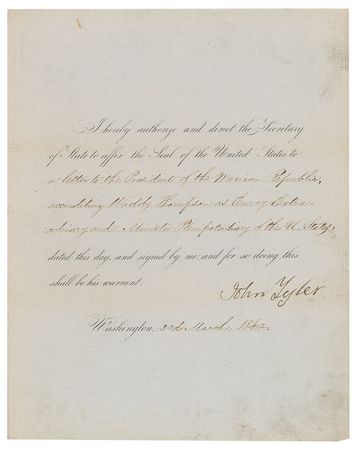 I hereby authorize and direct the Secretary
of State to affix the Seal of the United States to
a letter to the President of the Mexican Republic,
accrediting Waddy Thompson as Envoy Extra-
ordinary and Minister Plenipotentiary of the U. States,
dated this day, and signed by me and for so doing this
shall be his warrant.
John Tyler
Washington, March, 1842